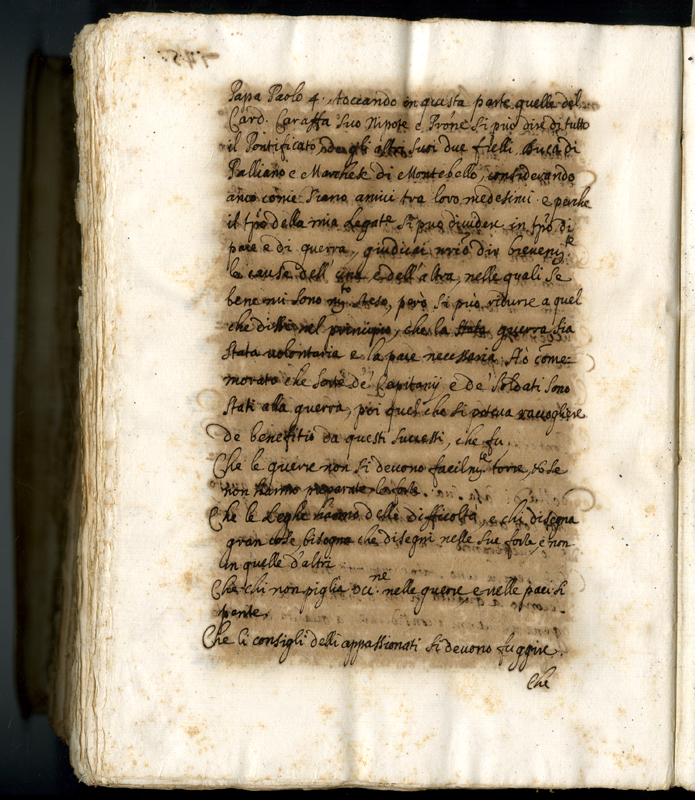 Papa Paolo 4. toccando in questa parte quelle del
Card. Caraffa suo Nipote e Prōne si può dire di tutto
il Pontificato, de gli altri suoi due f'telli Duca di
Palliano e Marchese di Montebello, considerando
anco come siano amici tra loro medesimi e perche
il tpō della mia Legatne si puo dividere in tpō di
pace e di guerra, giudicai dir brevemte
le cause dell' una, e dell'altra, nelle quali se
bene mi sono steso, però si può ridurre a quel
che dissi nel principio, che la stata guerra sia
stata volontaria e la pace necessaria. Hò come=
morato che sorte de' Capitanij e de' Soldati sono
stati alla guerra, poi quel che si poteva raccogliere
de benefitio da questi successi, che fu.
Che le guerre non si devono facilmte torre, se
non hanno preparate le forze.
Che le Leghe hanno delle difficoltà, e chi disegna
gran cose bisogna che disegni nelle sue forze, e non
in quelle d'altri
Che chi non piglia occne nelle guerre e nelle paci si
pente.
Che li consigli delli appassionati si devono fuggire.
Che